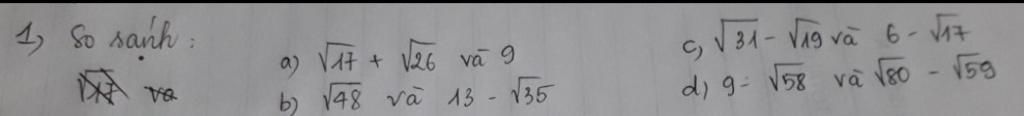 1, So sánh :
a) √17 + √26 và 9
b) √48 và 13 - √35
c, √31 - √19 và 6 - √17
d, 9 - √58 và √80 - √59